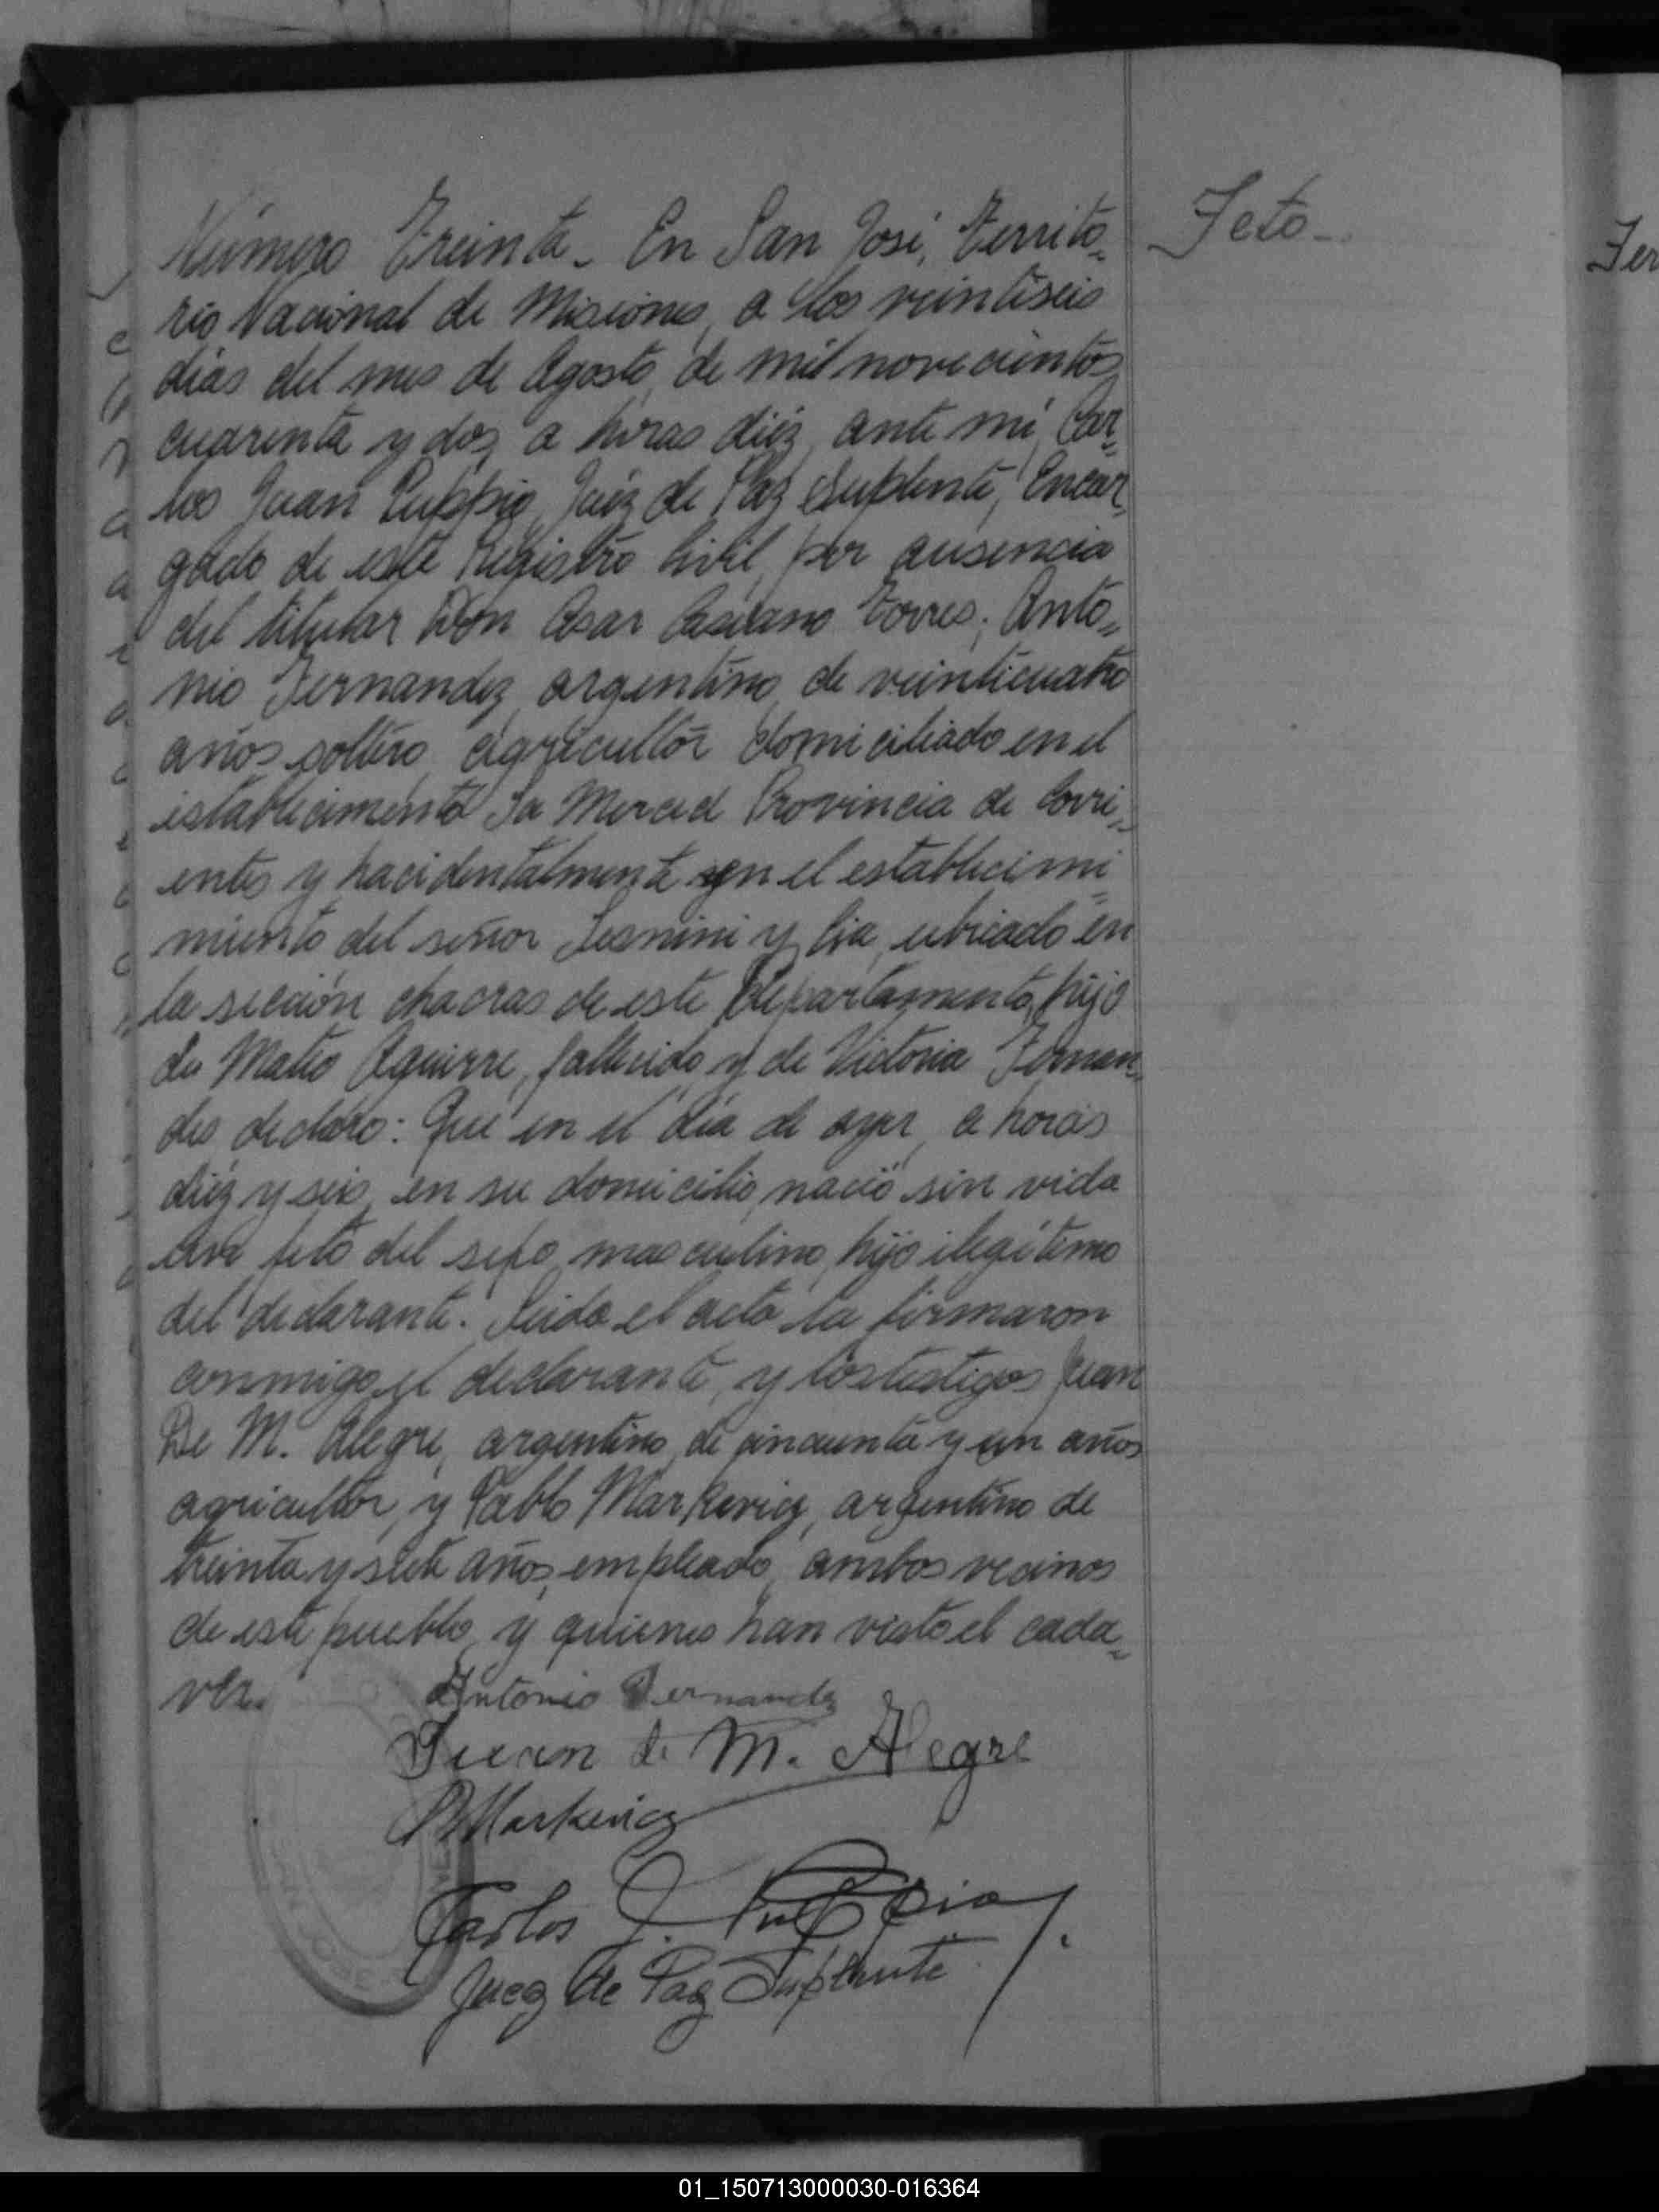 Número Treinta. En San José, Territo=
rio Nacional de Misiones, a los veintiseis
dias del mes de Agosto, de mil novecientos
cuarenta y dos, a horas diéz, ante mí, Car=
los Juan Puppio, Juéz de Paz Suplente, Encar=
gado de este Registro Civil, por ausencia
del titular Don Cesar Torres; Anto=
nio Fernandez, argentino, de veinticuatro
años, soltero, agricultor domiciliado en el
establecimento La Merced Provincia de Corri=
entes y hacidentalmente en el establecimi=
miento del señor y Cia, ubicado en
la seción chacras de este Departamento, hijo
de Mateo Aguirre, fallecido y de Victoria Fernan=
des declaro: Que en el dia de ayer, a horas
diéz y seis, en su domicilio, nació sin vida
un feto del sexo masculino, hijo ilegítimo
del declarante. Leida el acta la firmaron
conmigo, el declarante, y los testigos Juan
De M. Alegre, argentino, de cincuenta y un años
agricultor, y Pablo Markevicz, argentino de
treinta y siete años, empleado, ambos vecinos
de este pueblo, y quienes han visto el cada=
ver.
Antonio Fernandez
Juan de M. Alegre
P Markevicz
Carlos J. Puppio
Juez de Paz Suplente
Feto-
Fer
SAN JOSE
01_150713000030-016364